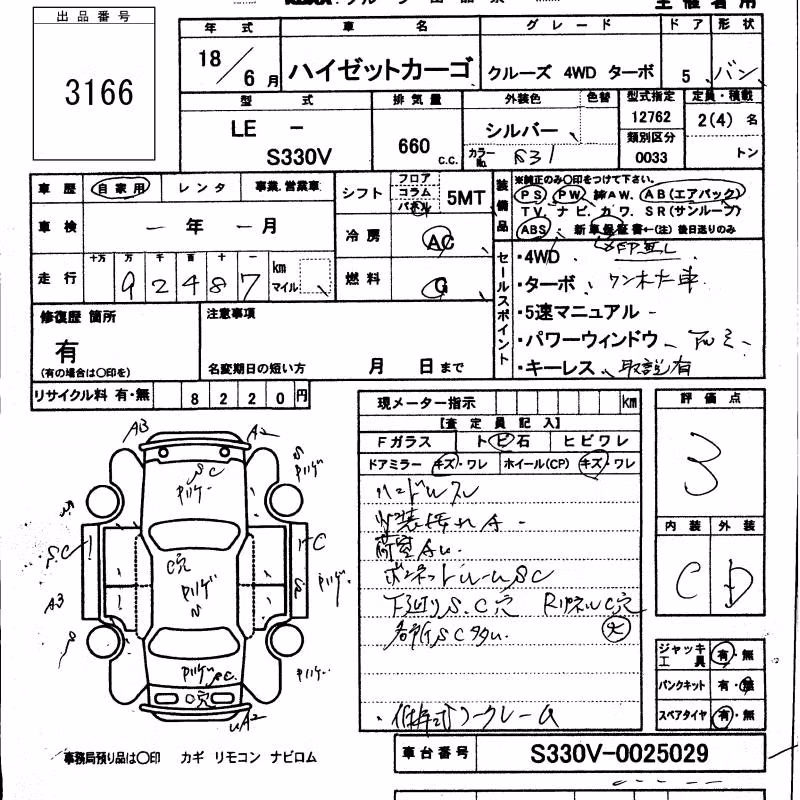 出品番号
3166
年 式 車 名 グ レ ー ド ド ア 形 状
18/6月 ハイゼットカーゴ クルーズ 4WD ターボ 5 バン
型 式 排気量 外装色 色替 型式指定 定員・積載
LE - S330V 660 c.c. シルバー 12762 2(4) 名
カラーNo. S31 類別区分 0033 トン
車 歴 自家用 レンタ 事業.営業車 シフト フロア コラム パネル 5MT
装備品 ※純正のみ〇印をつけて下さい。
PS PW AW. AB(エアバック)
TV. ナビ. カワ. SR(サンルーフ)
ABS 新車保証書←(注)後日送りのみ
車 検 - 年 - 月 冷 房 AC
走 行 十万 万 千 百 十 一 92487 km マイル 燃 料 G
セールスポイント
・4WD
・ターボ ワンオーナー車
・5速マニュアル
・パワーウィンドウ、アルミ
・キーレス、取説有
修復歴 箇所
有
(有の場合は〇印を)
注意事項
名変期日の短い方 月 日まで
リサイクル料 有・無 8220円
現メーター指示 km
【査 定 員 記 入】
Fガラス トビ石 ヒビワレ
ドアミラー キズ・ワレ ホイール(CP) キズ・ワレ
ハンドルスレ
内装汚れA
荷室AU
ボンネットルームSC
下廻りS.C穴 RパネルC穴
各所SC多い
評 価 点
3
内 装 外 装
C D
A3 A2
SC
C穴
S.C C
A3
SC
C穴
UA2
ジャッキ工具 有・無
パンクキット 有・無
スペアタイヤ 有・無
事務局預り品は〇印 カギ リモコン ナビロム
車台番号 S330V-0025029